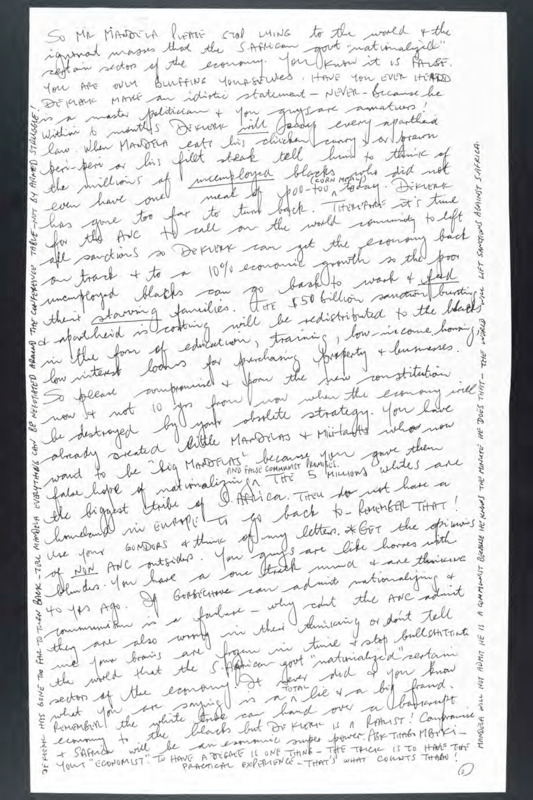 So MR MANDELA PLEASE STOP LYING to the world & the
ignorant masses that the S AFRICAN govt "nationalized"
certain sectors of the economy. You KNOW it is FALSE.
YOU ARE ONLY BLUFFING YOURSELVES. HAVE YOU EVER HEARD
DEKLERK MAKE an idiotic statement - NEVER - because he
is a master politician & you guys are amatures!
Within 6 months DEKLERK will every apartheid
law. When MANDELA eats his chicken curry & or prawn
peri-peri or his filet steak tell him to think of
the millions of unemployed blacks who did not
even have one meal of POO-TOO (CORN MEAL) today. DEKLERK
has gone too far to turn back. THEREFORE it's time
for the ANC to call on the world community to lift
all sanctions so DEKLERK can get the economy back
on track & to a 10% economic growth so the poor
unemployed blacks can go back to work & feed
their starving families. THE $50 billion sanction busting
& apartheid is costing will be redistributed to the blacks
in the form of education, training, low-income housing,
low interest loans for purchasing property & businesses.
So please compromise & form the new constitution
now & not 10 yrs from now when the economy will
be destroyed by your obsolete strategy. You have
already created little MANDELAS & Militants who now
want to be "big MANDELAS" because you gave them
false hope of nationalizing AND FALSE COMMUNIST PROMISES. THE 5 MILLION whites are
the biggest tribe of S AFRICA. THEY do not have a
homeland in EUROPE to go back to - REMEMBER THAT!
Use your & think of my letters. GET the opinions
of NON ANC outsiders. You guys are like horses with
blinders. You have a one track mind & are thinking
40 yrs ago. If can admit nationalizing &
communism is a failure - why can't the ANC admit
they are also wrong in their thinking or don't tell
me your brains are frozen in time & stop bullshitting
the world that the S. African govt "nationalized" certain
sectors of the economy. It never did & you know
what you are saying is a TOTAL lie & a big fraud.
REMEMBER the white tribe can hand over a bankrupt
economy to the blacks but DEKLERK IS A REALIST! Compromise
& SAFRICA will be an economic super power. ASK THABO MBEKI -
YOUR "ECONOMIST" TO HAVE A DEGREE IS ONE THING - THE TRICK IS TO HAVE THE
PRACTICAL EXPERIENCE - THAT'S WHAT COUNTS THABO!
DEKLERK HAS GONE TOO FAR TO TURN BACK - TELL MANDELA EVERYTHING CAN BE NEGOTIATED AROUND THE CONFERENCE TABLE - NOT BY ARMED STRUGGLE!
MANDELA WILL NOT ADMIT HE IS A COMMUNIST BECAUSE HE KNOWS THE MINUTE HE DOES THAT - THE WORLD WILL LIFT SANCTIONS AGAINST SAFRICA.